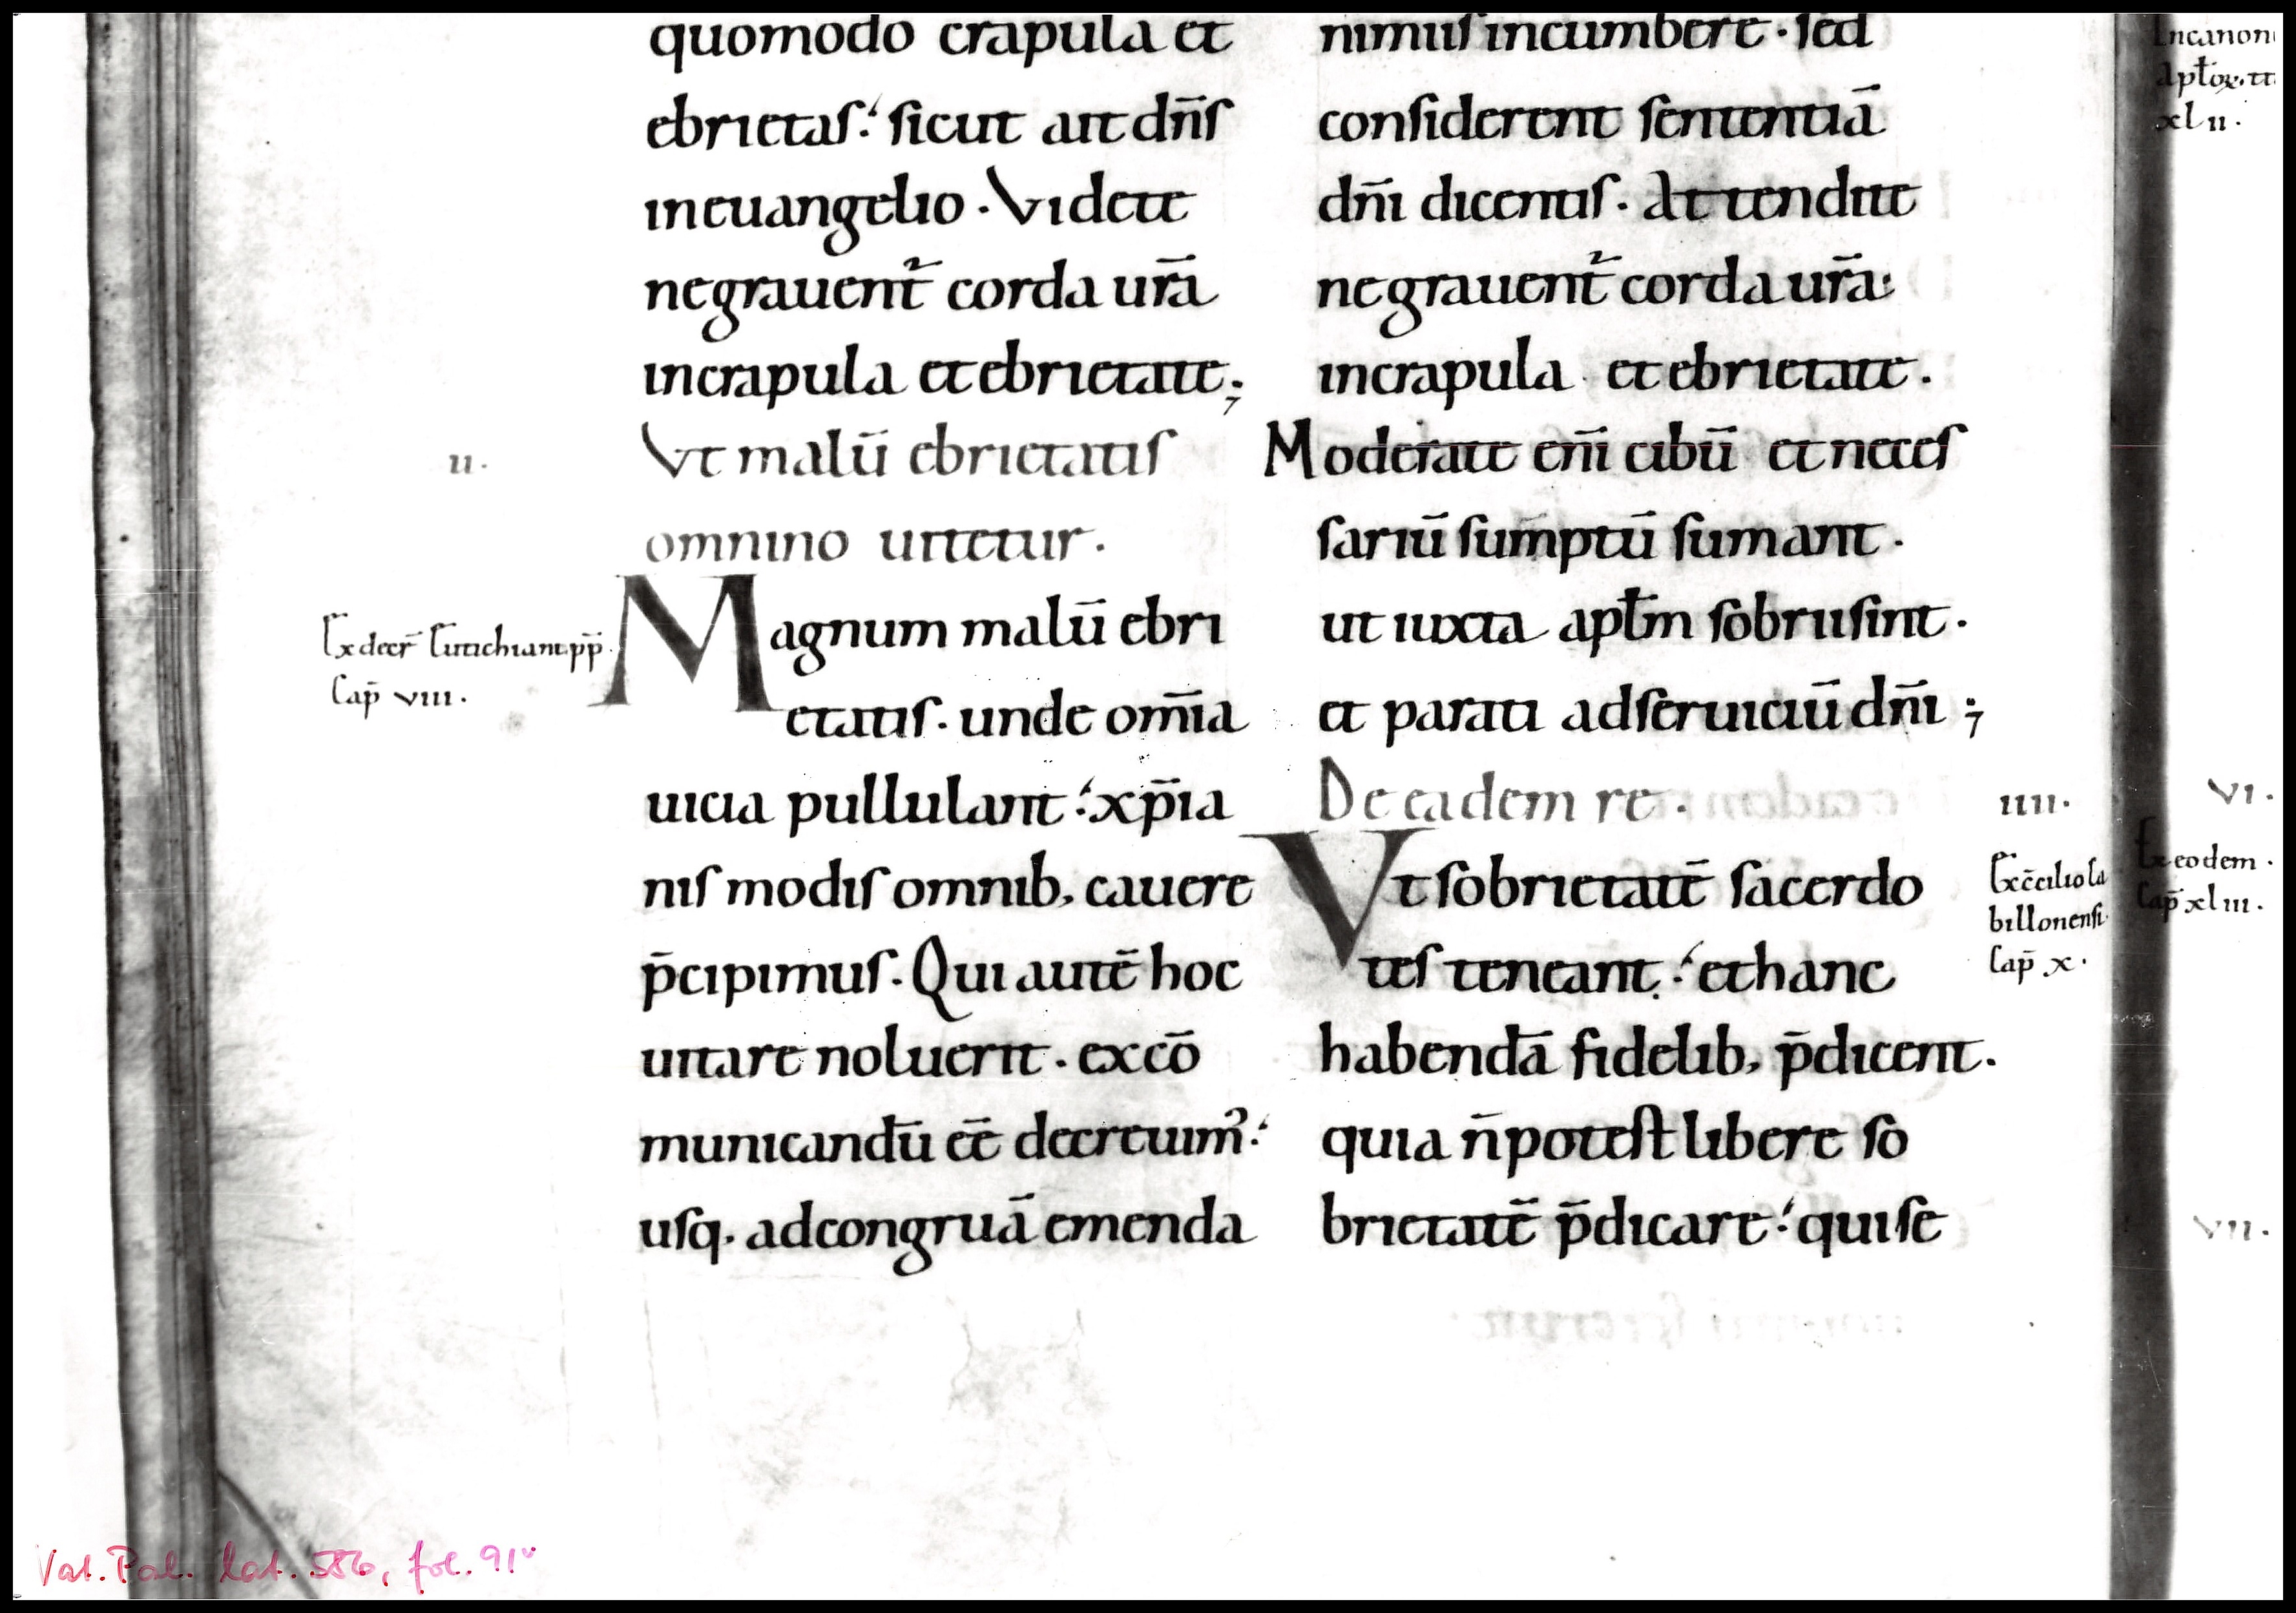 quomodo crapula et
ebrietas. sicut ait dn̄s
in euangelio. Videte
ne grauent᷑ corda ur̄a
in crapula et ebrietate;
ii.
Vt malū ebrietatis
omnino uitetur.
Ex decr̄ Eutichiani pp̄.
Cap̄ viii.
Magnum malū ebri
etatis. unde om̄ia
uicia pullulant. xp̄ia
nis modis omnib; cauere
p̄cipimus. Qui autē hoc
uitare noluerit. excō
municandū eē decreuim᾿.
usq. ad congruā emenda
nimiis incumbere. sed
considerent sententiā
dn̄i dicentis. Attendite
ne grauent᷑ corda ur̄a
in crapula et ebrietate.
Moderate en̄i cibū et neces
sariū sum̄ptū sumant.
ut iuxta aptl̄m sobrii sint.
et parati ad seruiciū dn̄i;
De eadem re.
iiii.
Ex c̄cilio ca
billonensi.
Cap̄ x.
Vt sobrietatē sacerdo
tes teneant. et hanc
habendā fidelib; p̄dicent.
quia n̄ potest libere so
brietatē p̄dicare. qui se
In canon
Aptl̄oꝝ. tt.
xlii.
vi.
Ex eodem.
Cap̄ xliii.
vii.
Vat. Pal. lat. 586, fol. 91v